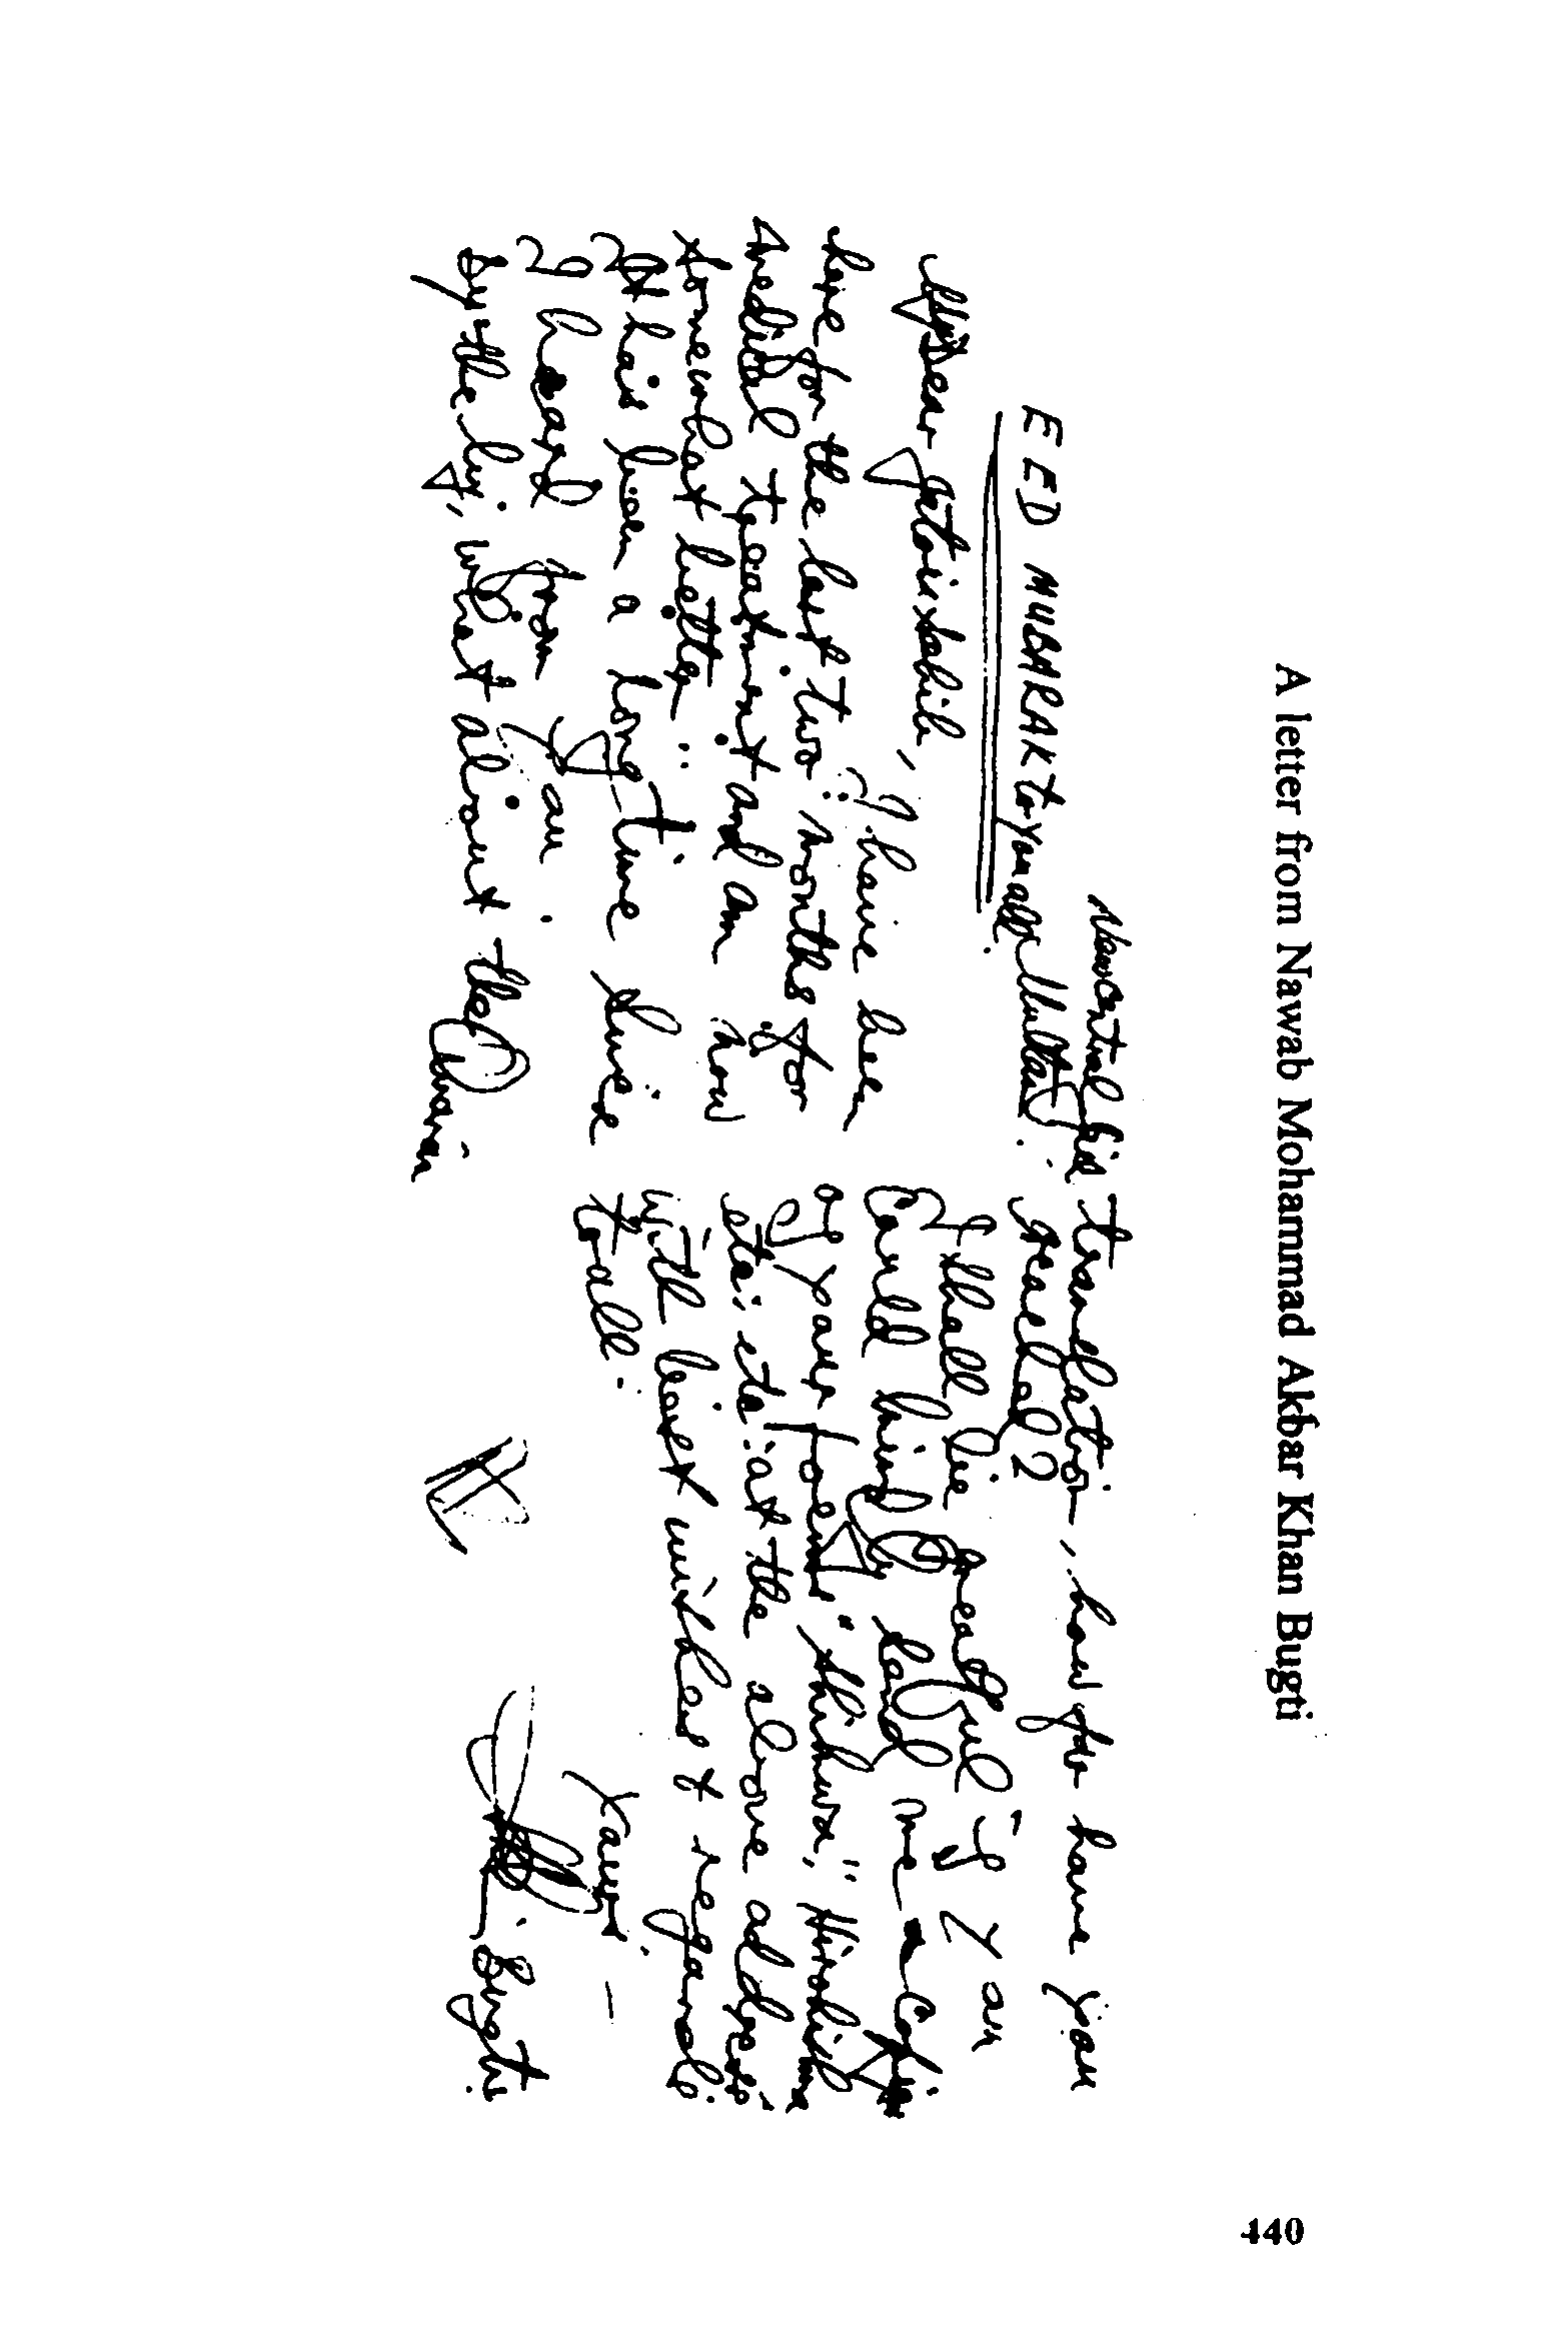 A letter from Nawab Mohammad Akbar Khan Bugti
New Central
Multan.
EED MUBARAK to you all
My Dear
I have been
here for the last two months for
medical treatment and am now
somewhat better.
It has been a long time since
I heard from you.
By-the-by, what about the Quran
translation, how far have you
reached?
I shall be grateful if you
could kindly send me a copy
of your Poem "Shikwa,"
etc; etc; at the above address
with best wishes & regards
to all.
Yours —
Bugti
440